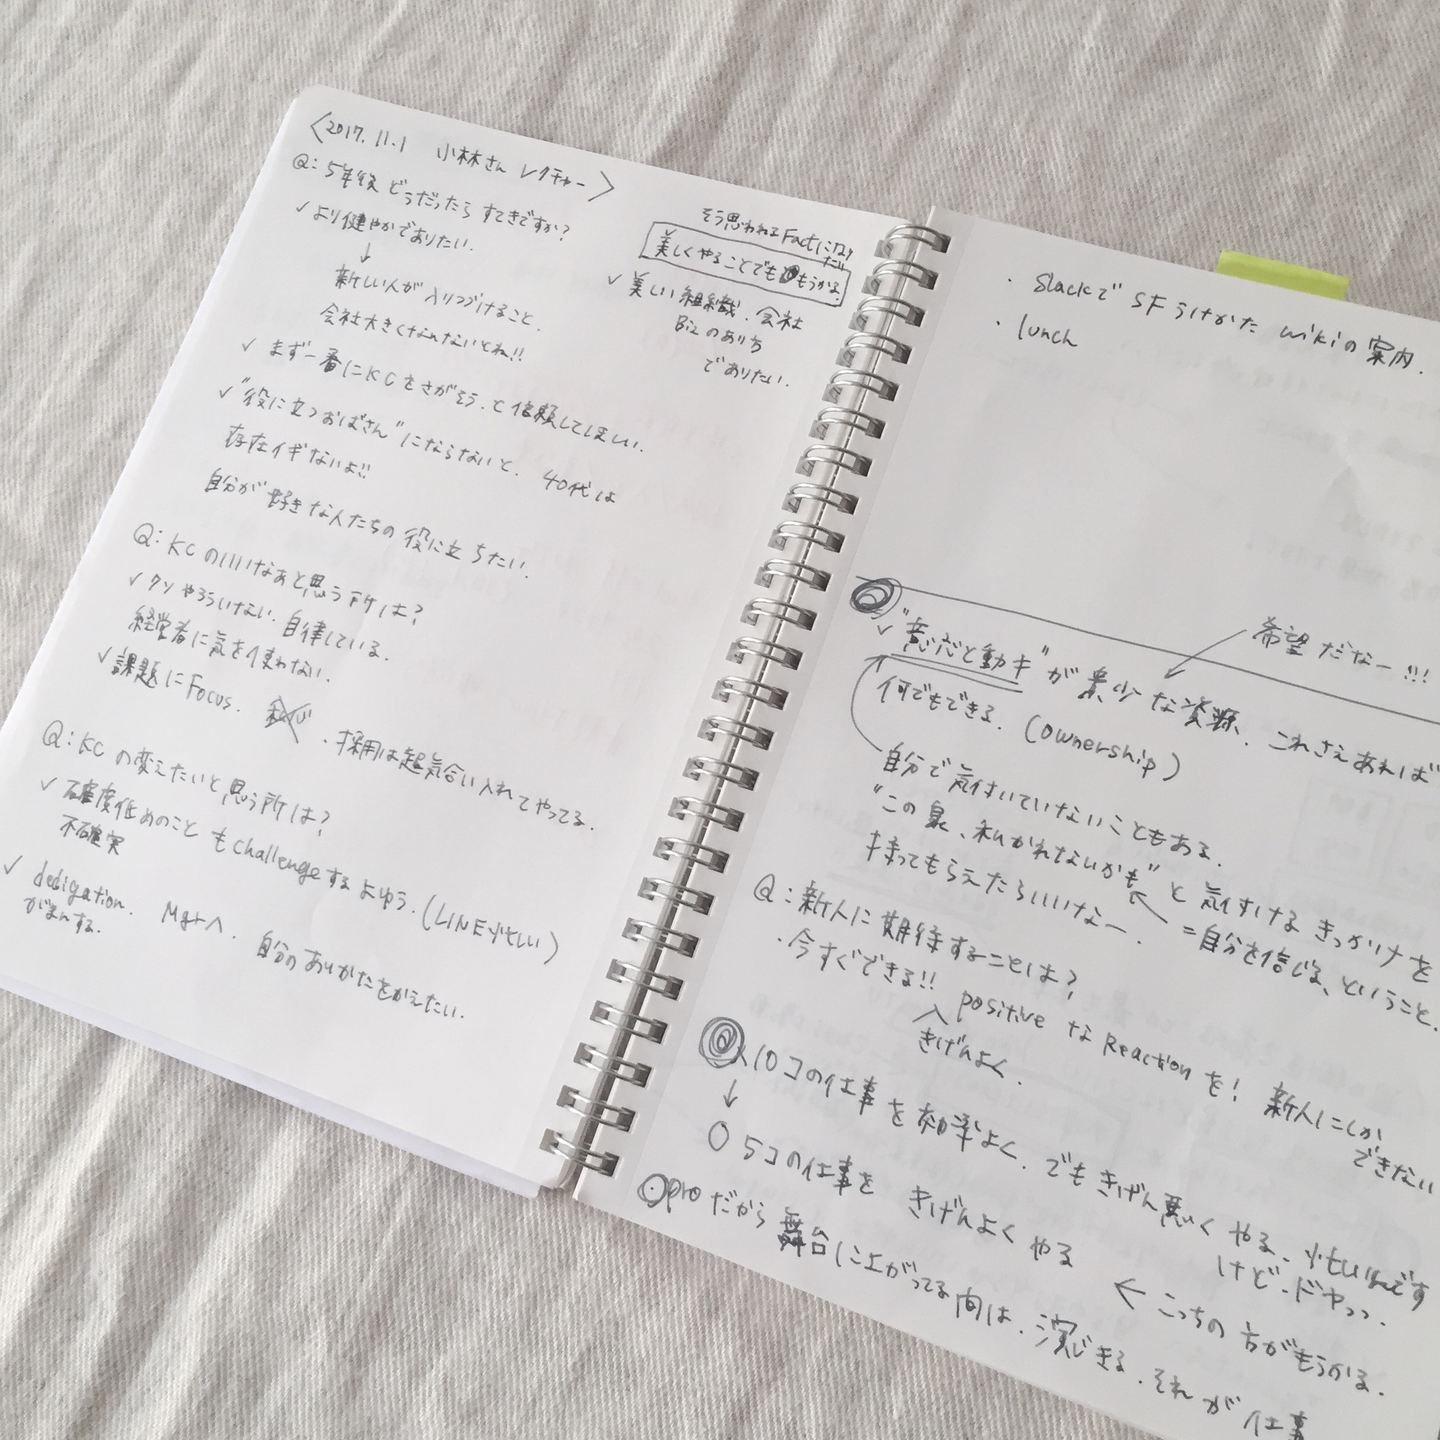 〈2017.11.1 小林さん レクチャー〉
Q: 5年後 どうだったら すてきですか?
✓ より健やかでありたい.
↓
新しい人が入りつづけること.
会社大きくなんないとね!!
そう思われるFactになりたい
美しくやることでももうかる.
✓ 美しい組織.会社
Bizのありち
でありたい.
✓ まず一番にKCをさがそう.と信頼してほしい.
✓ "役に立つおばさん"にならないと. 40代は
存在イギないよ!!
自分が好きな人たちの役に立ちたい.
Q: KCのいいなぁと思う所は?
✓ クソやろういない.自律している.
経営者に気を使わない.
✓ 課題にFocus. ・採用は超気合い入れてやってる.
Q: KCの変えたいと思う所は?
✓ 確度低めのこともChallengeするよゆう.(LINE忙しい)
不確実
✓ dedigation. Mgrへ. 自分のありかたをかえたい.
がまんする.
・Slackで SFうけかた wikiの案内.
・lunch
希望だなー!!!
✓ "意志と動キ"が希少な資源.これさえあれば
何でもできる.(ownership)
自分で気付いていないこともある.
"この泉、私かれないかも"と気付けるきっかけを
持ってもらえたらいいなー. =自分を信じる、ということ.
Q: 新人に期待することは?
・今すぐできる!! positiveなReactionを! 新人にしか
できない
きげんよく.
10コの仕事を効率よく.でもきげん悪くやる.忙しいんです
けど.ドヤっっ.
↓
○ 5コの仕事を きげんよくやる ← こっちの方がもうかる.
proだから舞台に上がってる間は.演じきる.それが仕事